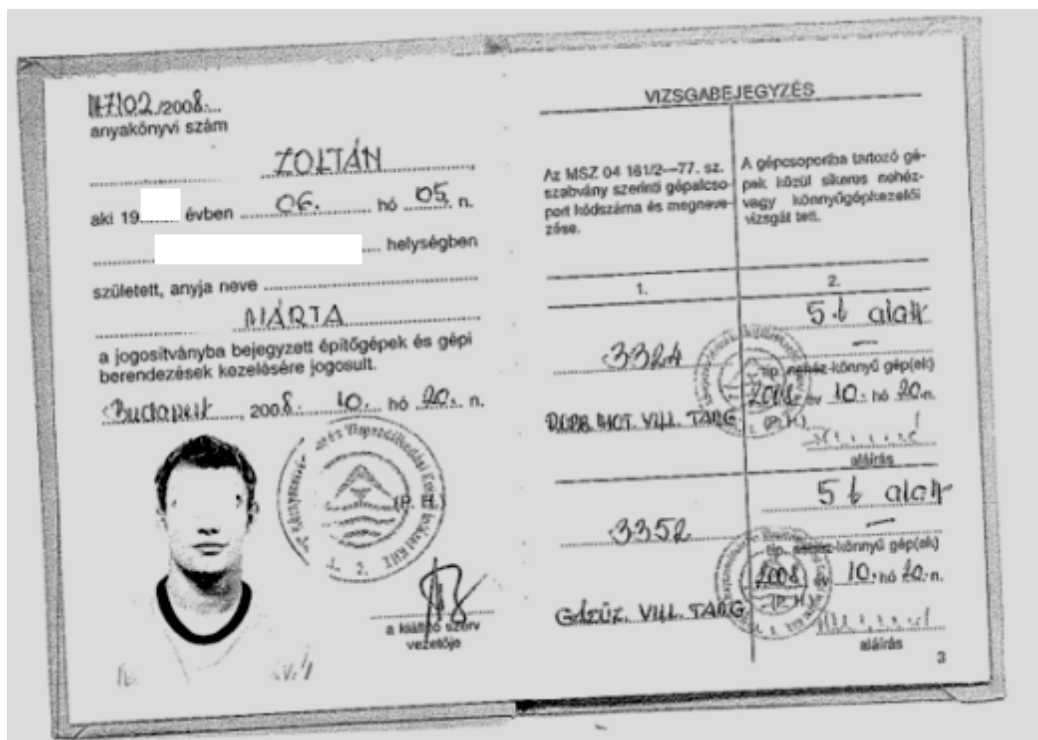 117102/2008.
anyakönyvi szám
ZOLTÁN
aki 19 évben 06. hó 05. n.
helységben
született, anyja neve
MÁRTA
a jogosítványba bejegyzett építőgépek és gépi
berendezések kezelésére jogosult.
Budapest, 2008. 10. hó 20. n.
(P. H.)
1. 2.
a kiállító szerv
vezetője
VIZSGABEJEGYZÉS
Az MSZ 04 161/2—77. sz.
szabvány szerinti gépalcso-
port kódszáma és megneve-
zése.
A gépcsoportba tartozó gé-
pek közül sikeres nehéz-
vagy könnyűgépkezelői
vizsgát tett.
1.
2.
5 t alatt
3324
tip. nehéz-könnyű gép(ek)
2008. év 10. hó 20. n.
MOT. VILL. TARG
(P. H.)
aláírás
5 t alatt
3352
tip. nehéz-könnyű gép(ek)
2008 év 10. hó 20. n.
GÁZÜZ. VILL. TARG
(P. H.)
aláírás
3